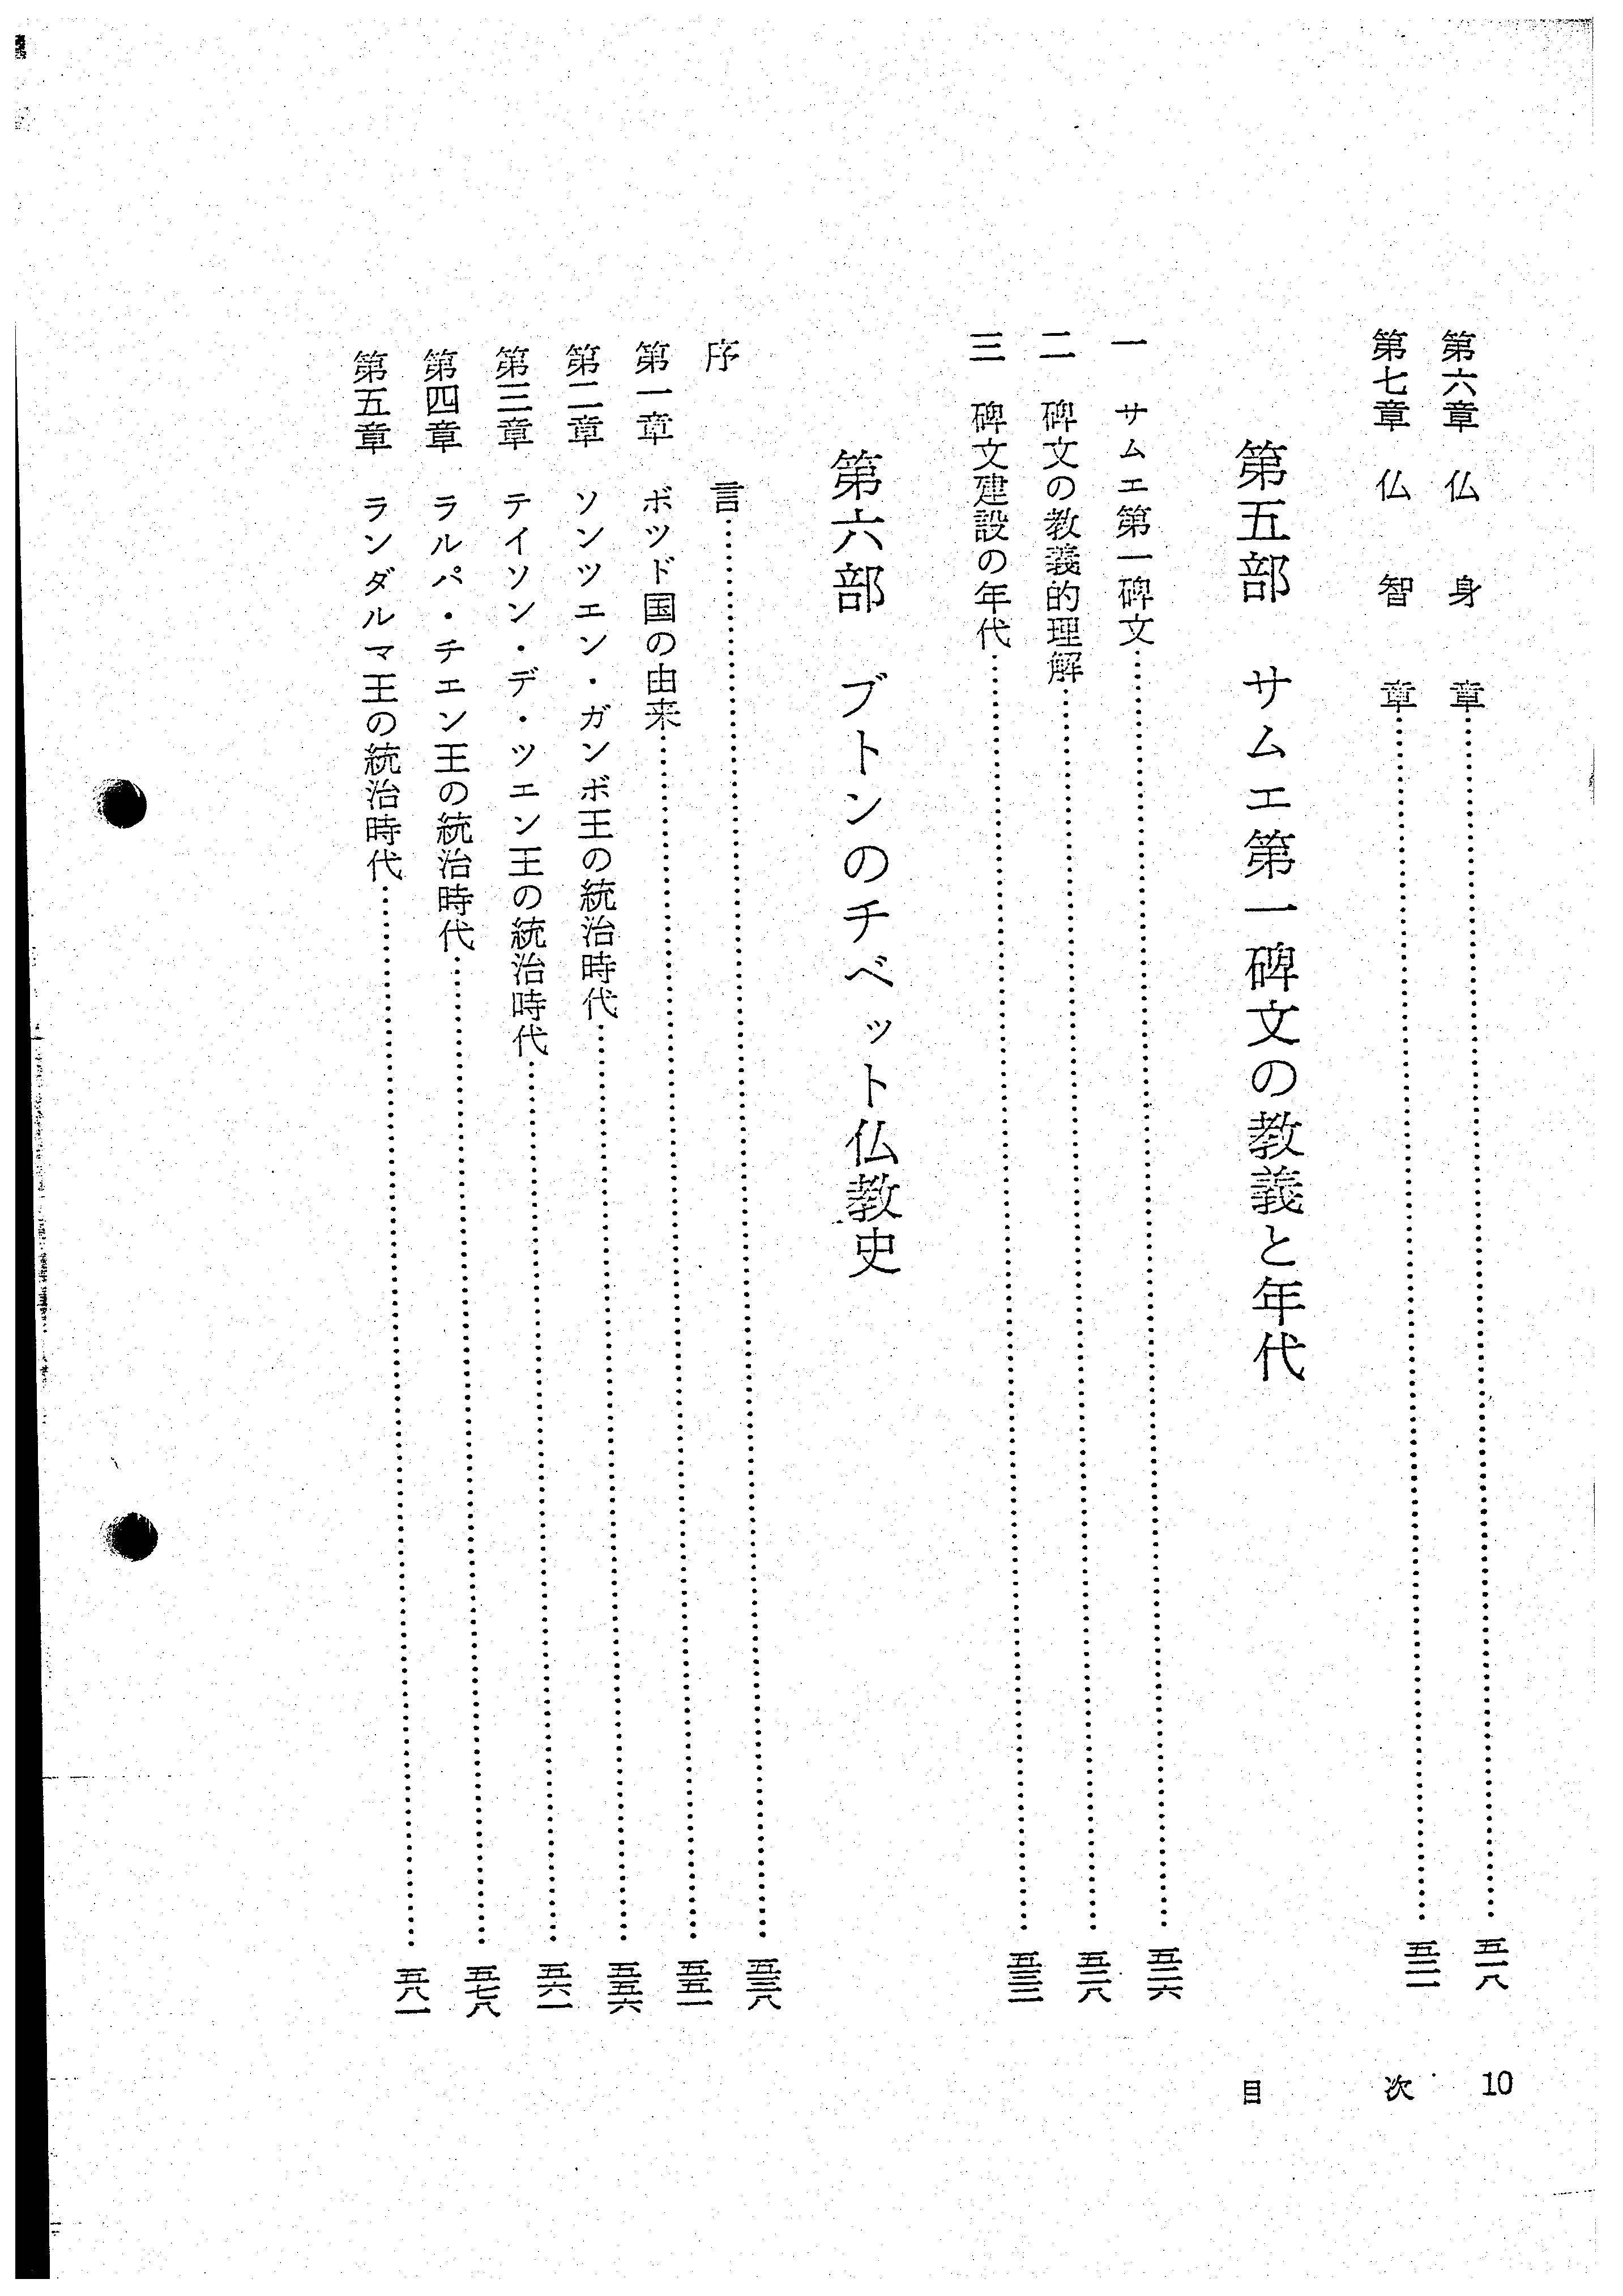 第六章　仏　身　章……五一八
第七章　仏　智　章……五二一
第五部　サムエ第一碑文の教義と年代
一　サムエ第一碑文……五二六
二　碑文の教義的理解……五二八
三　碑文建設の年代……五三三
第六部　ブトンのチベット仏教史
序　言……五三八
第一章　ボツド国の由来……五五一
第二章　ソンツエン・ガンボ王の統治時代……五五六
第三章　テイソン・デ・ツエン王の統治時代……五六一
第四章　ラルパ・チエン王の統治時代……五七八
第五章　ランダルマ王の統治時代……五八一
目　次　10